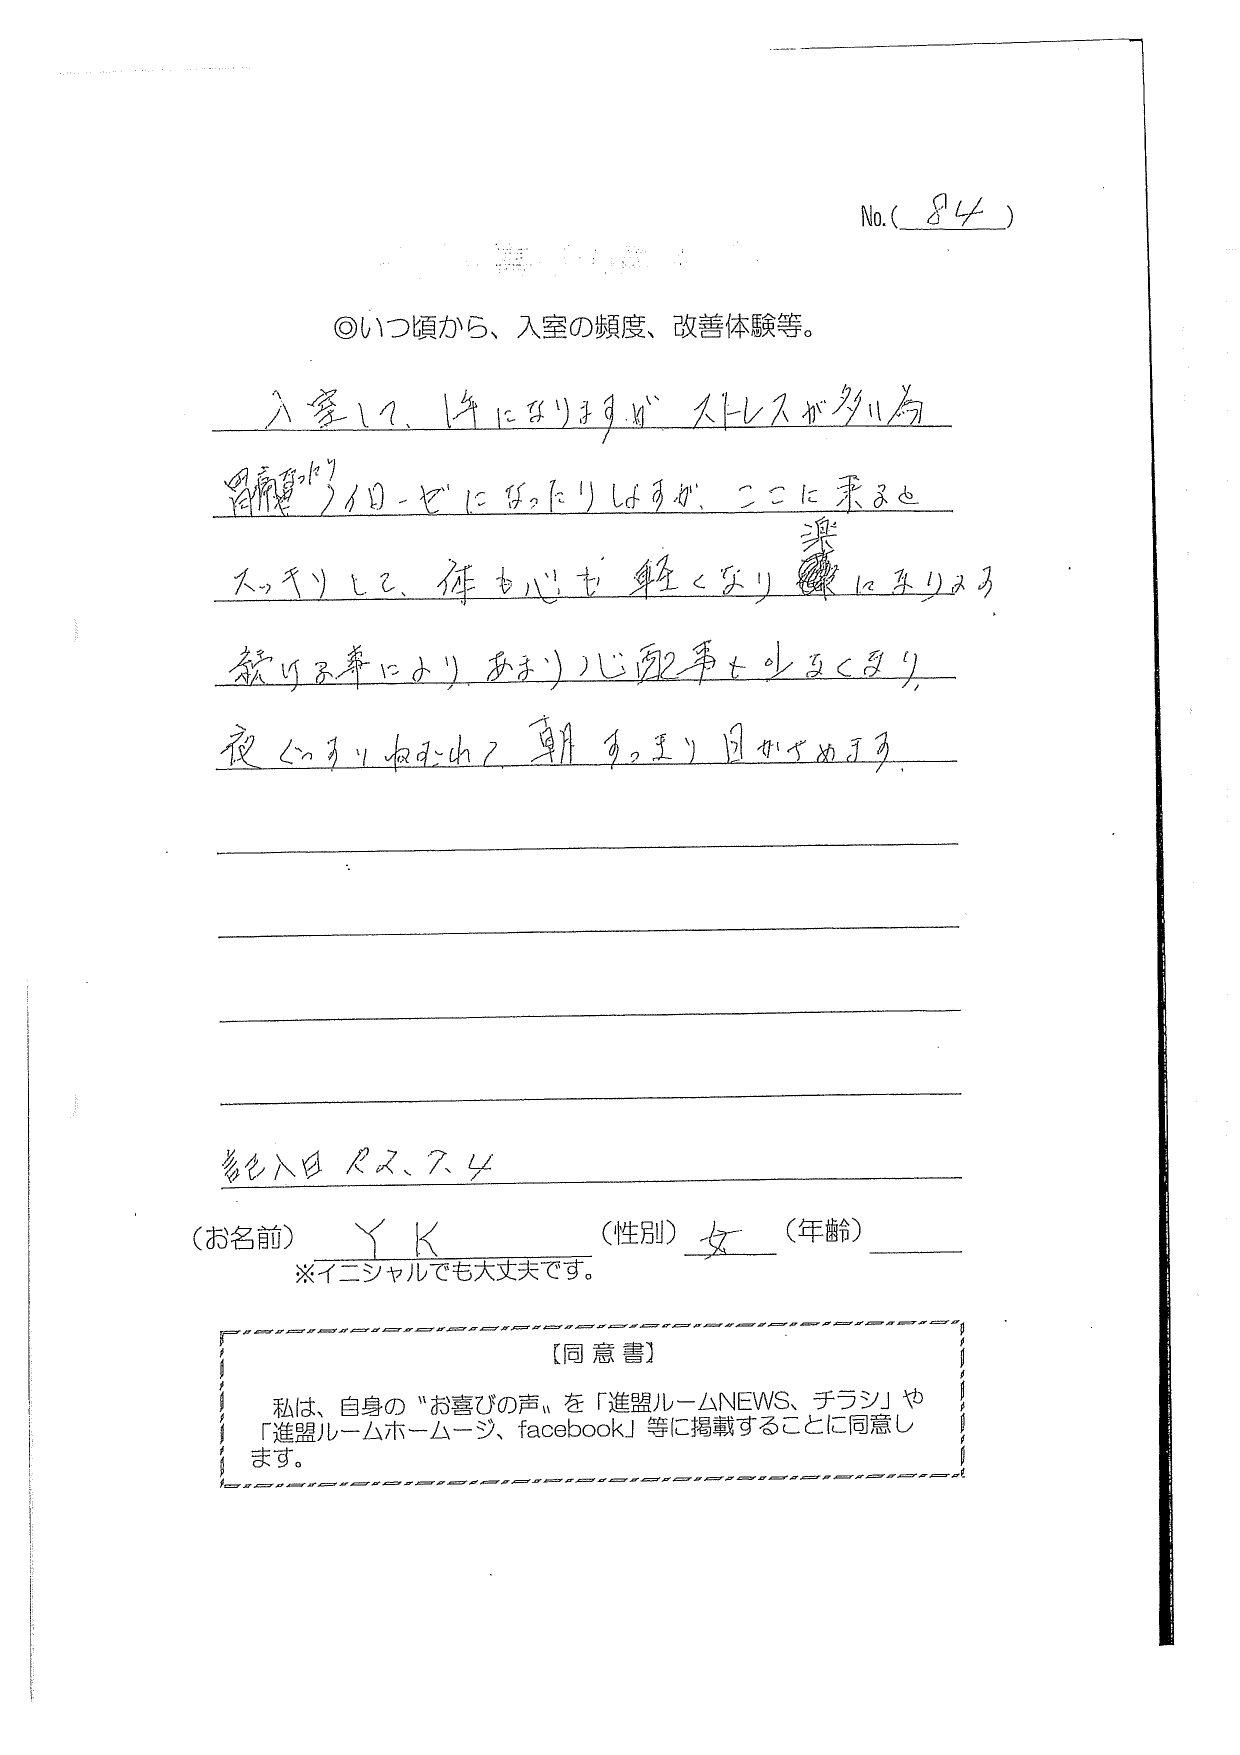 No.( 84 )
◎いつ頃から、入室の頻度、改善体験等。
入室して、1年になりますが ストレスが多い為
胃痛 なったり ノイローゼになったりしますが、ここに来ると
スッキリして、体も心も 軽くなり 楽 になります
続ける事により あまり心配事も少なくなり、
夜ぐっすりねむれて 朝 すっまり 目がさめます。
記入日 R2、7、4
(お名前) Y K (性別) 女 (年齢)
※イニシャルでも大丈夫です。
【同 意 書】
私は、自身の〝お喜びの声〟を「進盟ルームNEWS、チラシ」や
「進盟ルームホームージ、facebook」等に掲載することに同意し
ます。